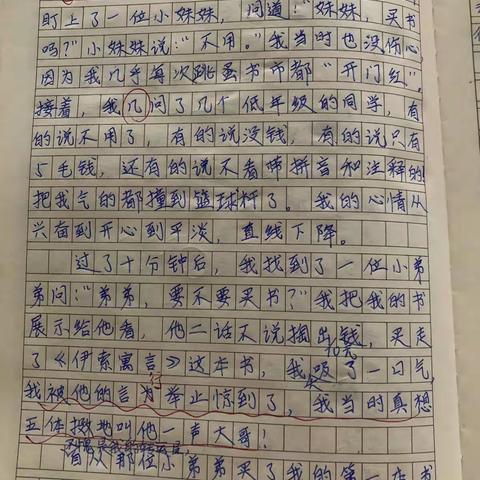 盯上了一位小妹妹，问道：“妹妹，买书
吗？”小妹妹说：“不用。”我当时也没伤心，
因为我几乎每次跳蚤书市都“开门红”。
接着，我几问了几个低年级的同学，有
的说不用了，有的说没钱，有的说只有
5毛钱，还有的说不看带拼音和注释的！
把我气的都撞到篮球杆了。我的心情从
兴奋到开心到平淡，直线下降。
过了十分钟后，我找到了一位小弟
弟问：“弟弟，要不要买书？”我把我的书
展示给他看，他二话不说掏出钱，买走
10元
了《伊索寓言》这本书，我吸了一口气，
行
我被他的言为举止惊到了，我当时真想
五体投地叫他一声大哥！
自从那位小弟弟买了我的第一本书